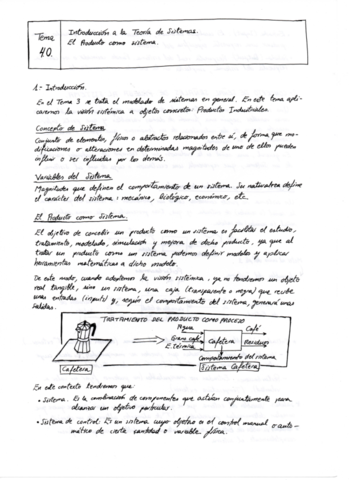 Tema
40.
Introducción a la Teoría de Sistemas.
El Producto como sistema.
1.- Introducción.
En el Tema 3 se trata el modelado de sistemas en general. En este tema apli-
caremos la visión sistémica a objetos concretos: Productos Industriales.
Concepto de Sistema
Conjunto de elementos, físicos o abstractos relacionados entre sí, de forma que mo-
dificaciones o alteraciones en determinadas magnitudes de uno de ellos pueden
influir o ser influidas por los demás.
Variables del Sistema
Magnitudes que definen el comportamiento de un sistema. Su naturaleza define
el carácter del sistema: mecánico, biológico, económico, etc.
El Producto como Sistema.
El objetivo de concebir un producto como un sistema es facilitar el estudio,
tratamiento, modelado, simulación y mejora de dicho producto, ya que al
tratar un producto como un sistema podemos definir modelos y aplicar
herramientas matemáticas a dicho modelo.
De este modo, cuando adoptemos la visión sistémica, ya no tendremos un objeto
real tangible, sino un sistema, una caja (transparente o negra) que recibe
unas entradas (inputs) y, según el comportamiento del sistema, generará unas
salidas.
TRATAMIENTO DEL PRODUCTO COMO PROCESO
Agua
Grano café
E. térmica
Cafetera
Café
Residuos
Comportamiento del sistema
Cafetera
Sistema Cafetera
En este contexto tendremos que:
• Sistema. Es la combinación de componentes que actúan conjuntamente para
alcanzar un objetivo particular.
• Sistema de control: Es un sistema cuyo objetivo es el control manual o auto-
mático de cierta cantidad o variable física.